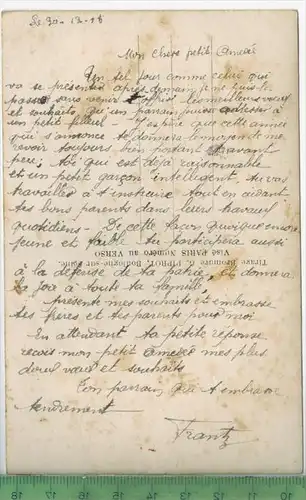 Le 30-12-18
Mon chere petit Amedé
Un tel jour comme celui qui
va se presenter après demain je ne puis le
passer sans venir t'offrir les meilleurs vœux
et souhaits qu'un parrain puisse adresser à
un petit filleul que cette année
qui s'annonce te donnera le moyen de me
revoir toujours bien portant et avant
peu; toi qui est déjà raisonnable
et un petit garçon intelligent, tu vas
travailler à t'instruire tout en aidant
tes bons parents dans leurs travaux
quotidiens. De cette façon quoique encore
jeune et faible tu participera aussi
Visé PARIS Numéro au VERSO
à la défense de ta patrie, et donnera
la joie à toute ta famille,
présente mes souhaits et embrasse
tes frères et tes parents pour moi
En attendant ta petite réponse
reçois mon petit Amedé mes plus
doux vœux et souhaits
Ton parrain qui t'embrasse
tendrement
Frantz
18 17 16 15 14 13 12 11 10